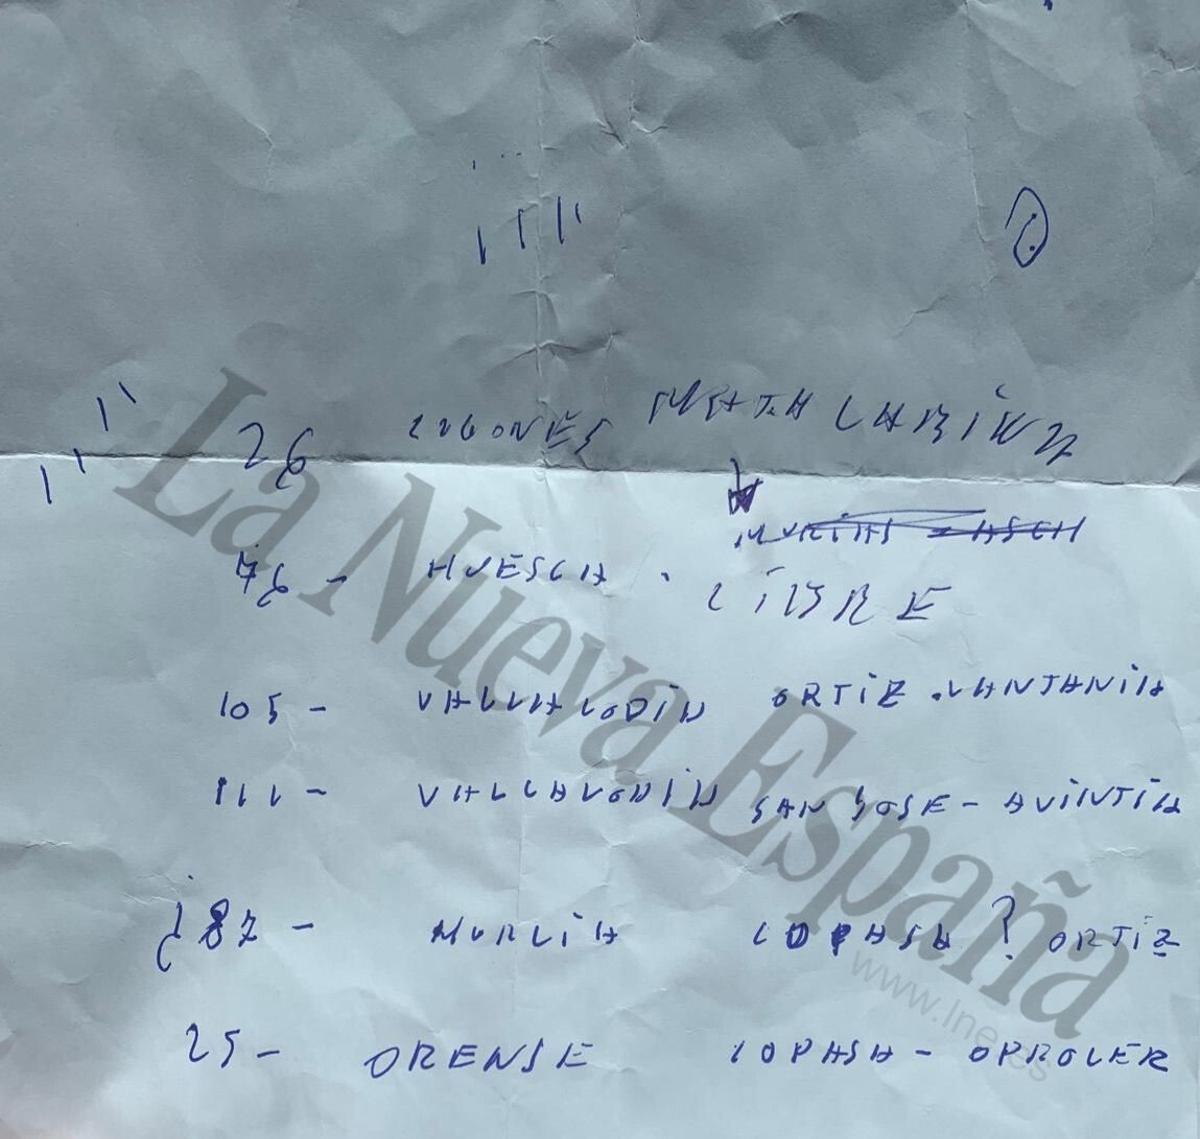 26 LUGONES MATA LABIKA
MURIAS
76 - HUESCA . LIBRE
105 - VALLALODID ORTIZ . VANTANIA
111 - VALLALODID SAN JOSE - AVINTIA
¿ 82 - MURCIA COPASA ? ORTIZ
25 - ORENSE COPASA - OPROLER
La Nueva España
www.lne.es